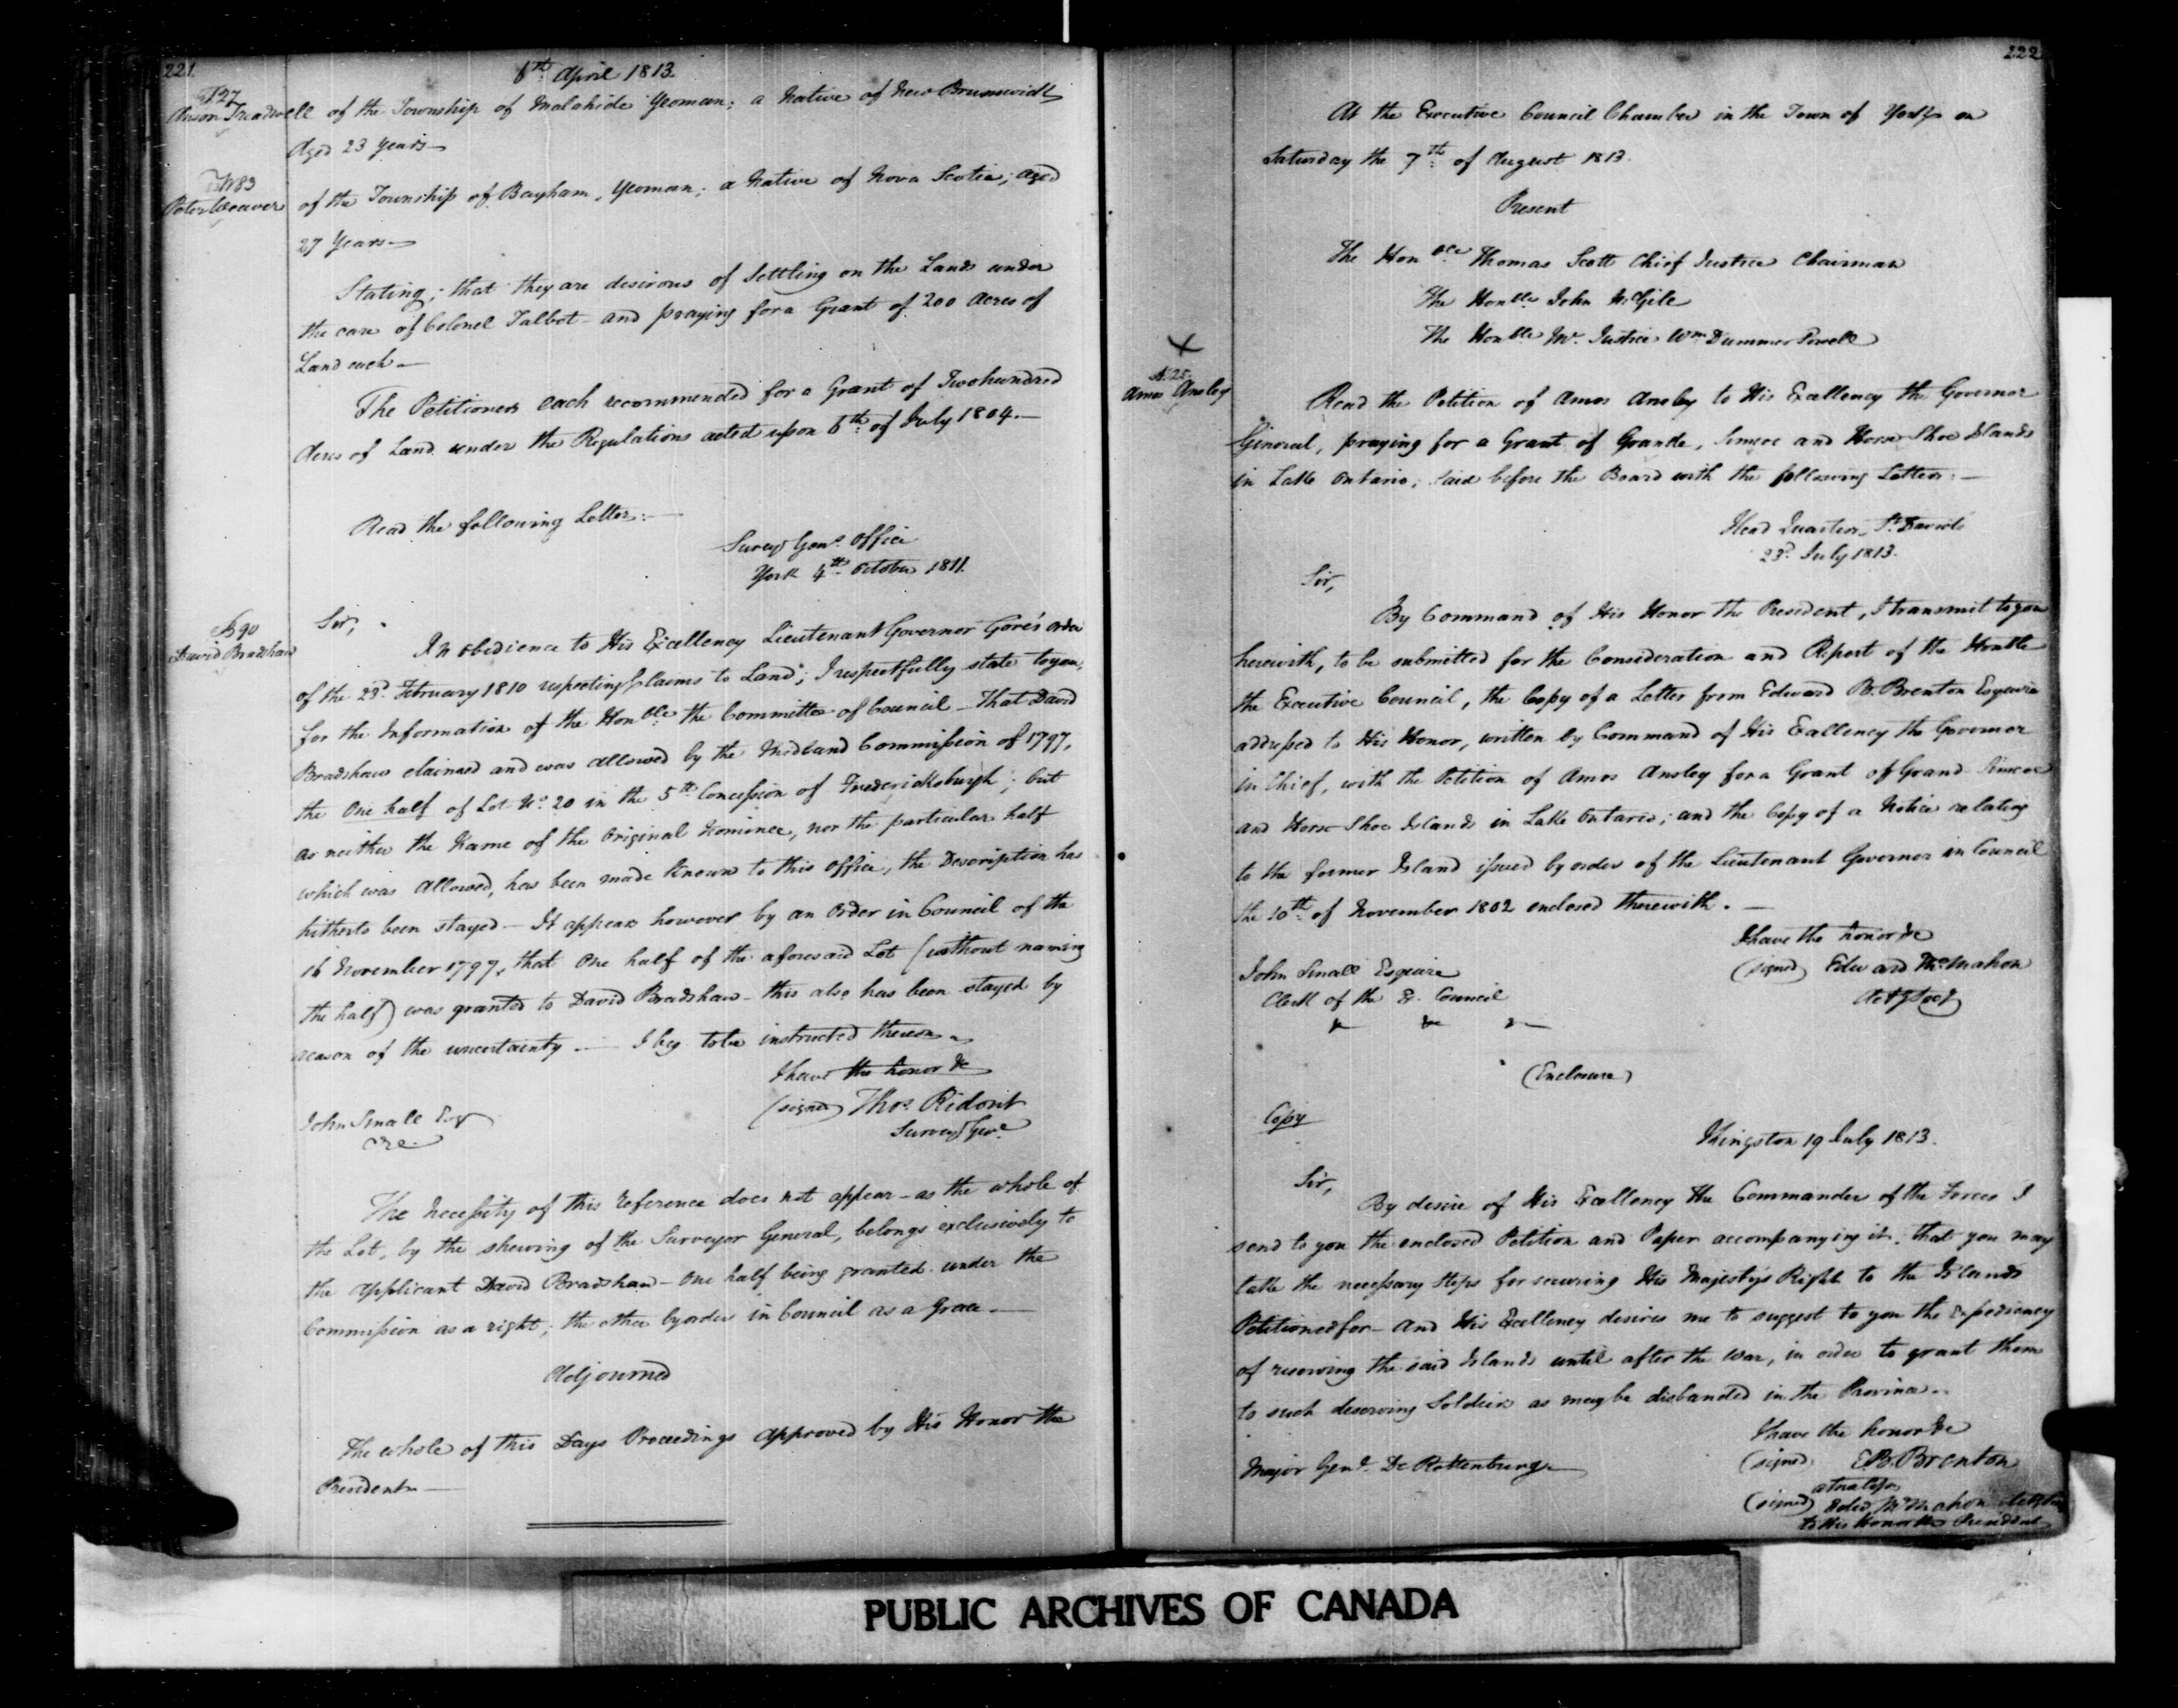 221.
6th April 1813.
T 27
Anson Treadwell of the Township of Malahide Yeoman; a Native of New Brunswick
Aged 23 years—
W 83
Peter Weaver of the Township of Bayham, Yeoman; a Native of Nova Scotia; aged
27 Years—
Stating; that they are desirous of Settling on the Lands under
the care of Colonel Talbot and praying for a Grant of 200 Acres of
Land each—
The Petitioners each recommended for a Grant of Two hundred
Acres of Land under the Regulations acted upon 6th of July 1804.—
Read the following Letter:—
Surveyr Genl Office
York 4th October 1811.
90
David Bradshaw
Sir,
In obedience to His Excellency Lieutenant Governor Gore's order
of the 23d February 1810 respecting Claims to Land; I respectfully state to you,
for the Information of the Honble the Committee of Council— That David
Bradshaw claimed and was allowed by the Midland Commission of 1797,
the One half of Lot No 20 in the 5th Concession of Fredericksburgh; but
as neither the Name of the Original Nominee, nor the particular half
which was allowed, has been made known to this Office, the Description has
hitherto been stayed— It appears however by an Order in Council of the
16 November 1797, that One half of the aforesaid Lot (without naming
the half) was granted to David Bradshaw— this also has been stayed by
reason of the uncertainty.— I beg to be instructed thereon—
I have the honor &c
(signed) Thos Ridout
Surveyr Genl
John Small Esqr
The Necessity of this reference does not appear— as the whole of
the Lot, by the shewing of the Surveyor General, belongs exclusively to
the applicant David Bradshaw— One half being granted under the
Commission as a right; the other by order in Council as a Grace.—
Adjourned
The whole of this Days Proceedings approved by His Honor the
President—
222
At the Executive Council Chamber in the Town of York on
Saturday the 7th of August 1813.
Present
The Honble Thomas Scott Chief Justice Chairman
The Honble John McGill
The Honble Mr. Justice Wm Dummer Powell
X
A 25.
Amos Ansley
Read the Petition of Amos Ansley to His Excellency the Governor
General, praying for a Grant of Grande, Simcoe and Horse Shoe Islands
in Lake Ontario, laid before the Board with the following Letter:—
Head Quarters St Davids
23d July 1813.
Sir,
By Command of His Honor the President, I transmit to you
herewith, to be submitted for the Consideration and Report of the Honble
the Executive Council, the Copy of a Letter from Edward B. Brenton Esquire
addressed to His Honor, written by Command of His Excellency the Governor
in Chief, with the Petition of Amos Ansley for a Grant of Grand Simcoe
and Horse Shoe Islands in Lake Ontario; and the Copy of a Notice relating
to the former Island issued by order of the Lieutenant Governor in Council
the 10th of November 1802 enclosed therewith.—
I have the honor &c
(signed) Edward McMahon
John Small Esquire
Clerk of the Ex. Council
&c &c &c
(Enclosure)
Copy
Kingston 19 July 1813.
Sir,
By desire of His Excellency the Commander of the Forces I
send to you the enclosed Petition and Paper accompanying it, that you may
take the necessary steps for securing His Majesty's Right to the Islands
Petitioned for— and His Excellency desires me to suggest to you the Expediency
of reserving the said Islands until after the War, in order to grant them
to such deserving Soldiers as may be disbanded in the Province.—
I have the honor &c
(signed) E.B. Brenton
Major Genl De Rottenburg—
(signed) Edwd McMahon
to His Honor the President
PUBLIC ARCHIVES OF CANADA